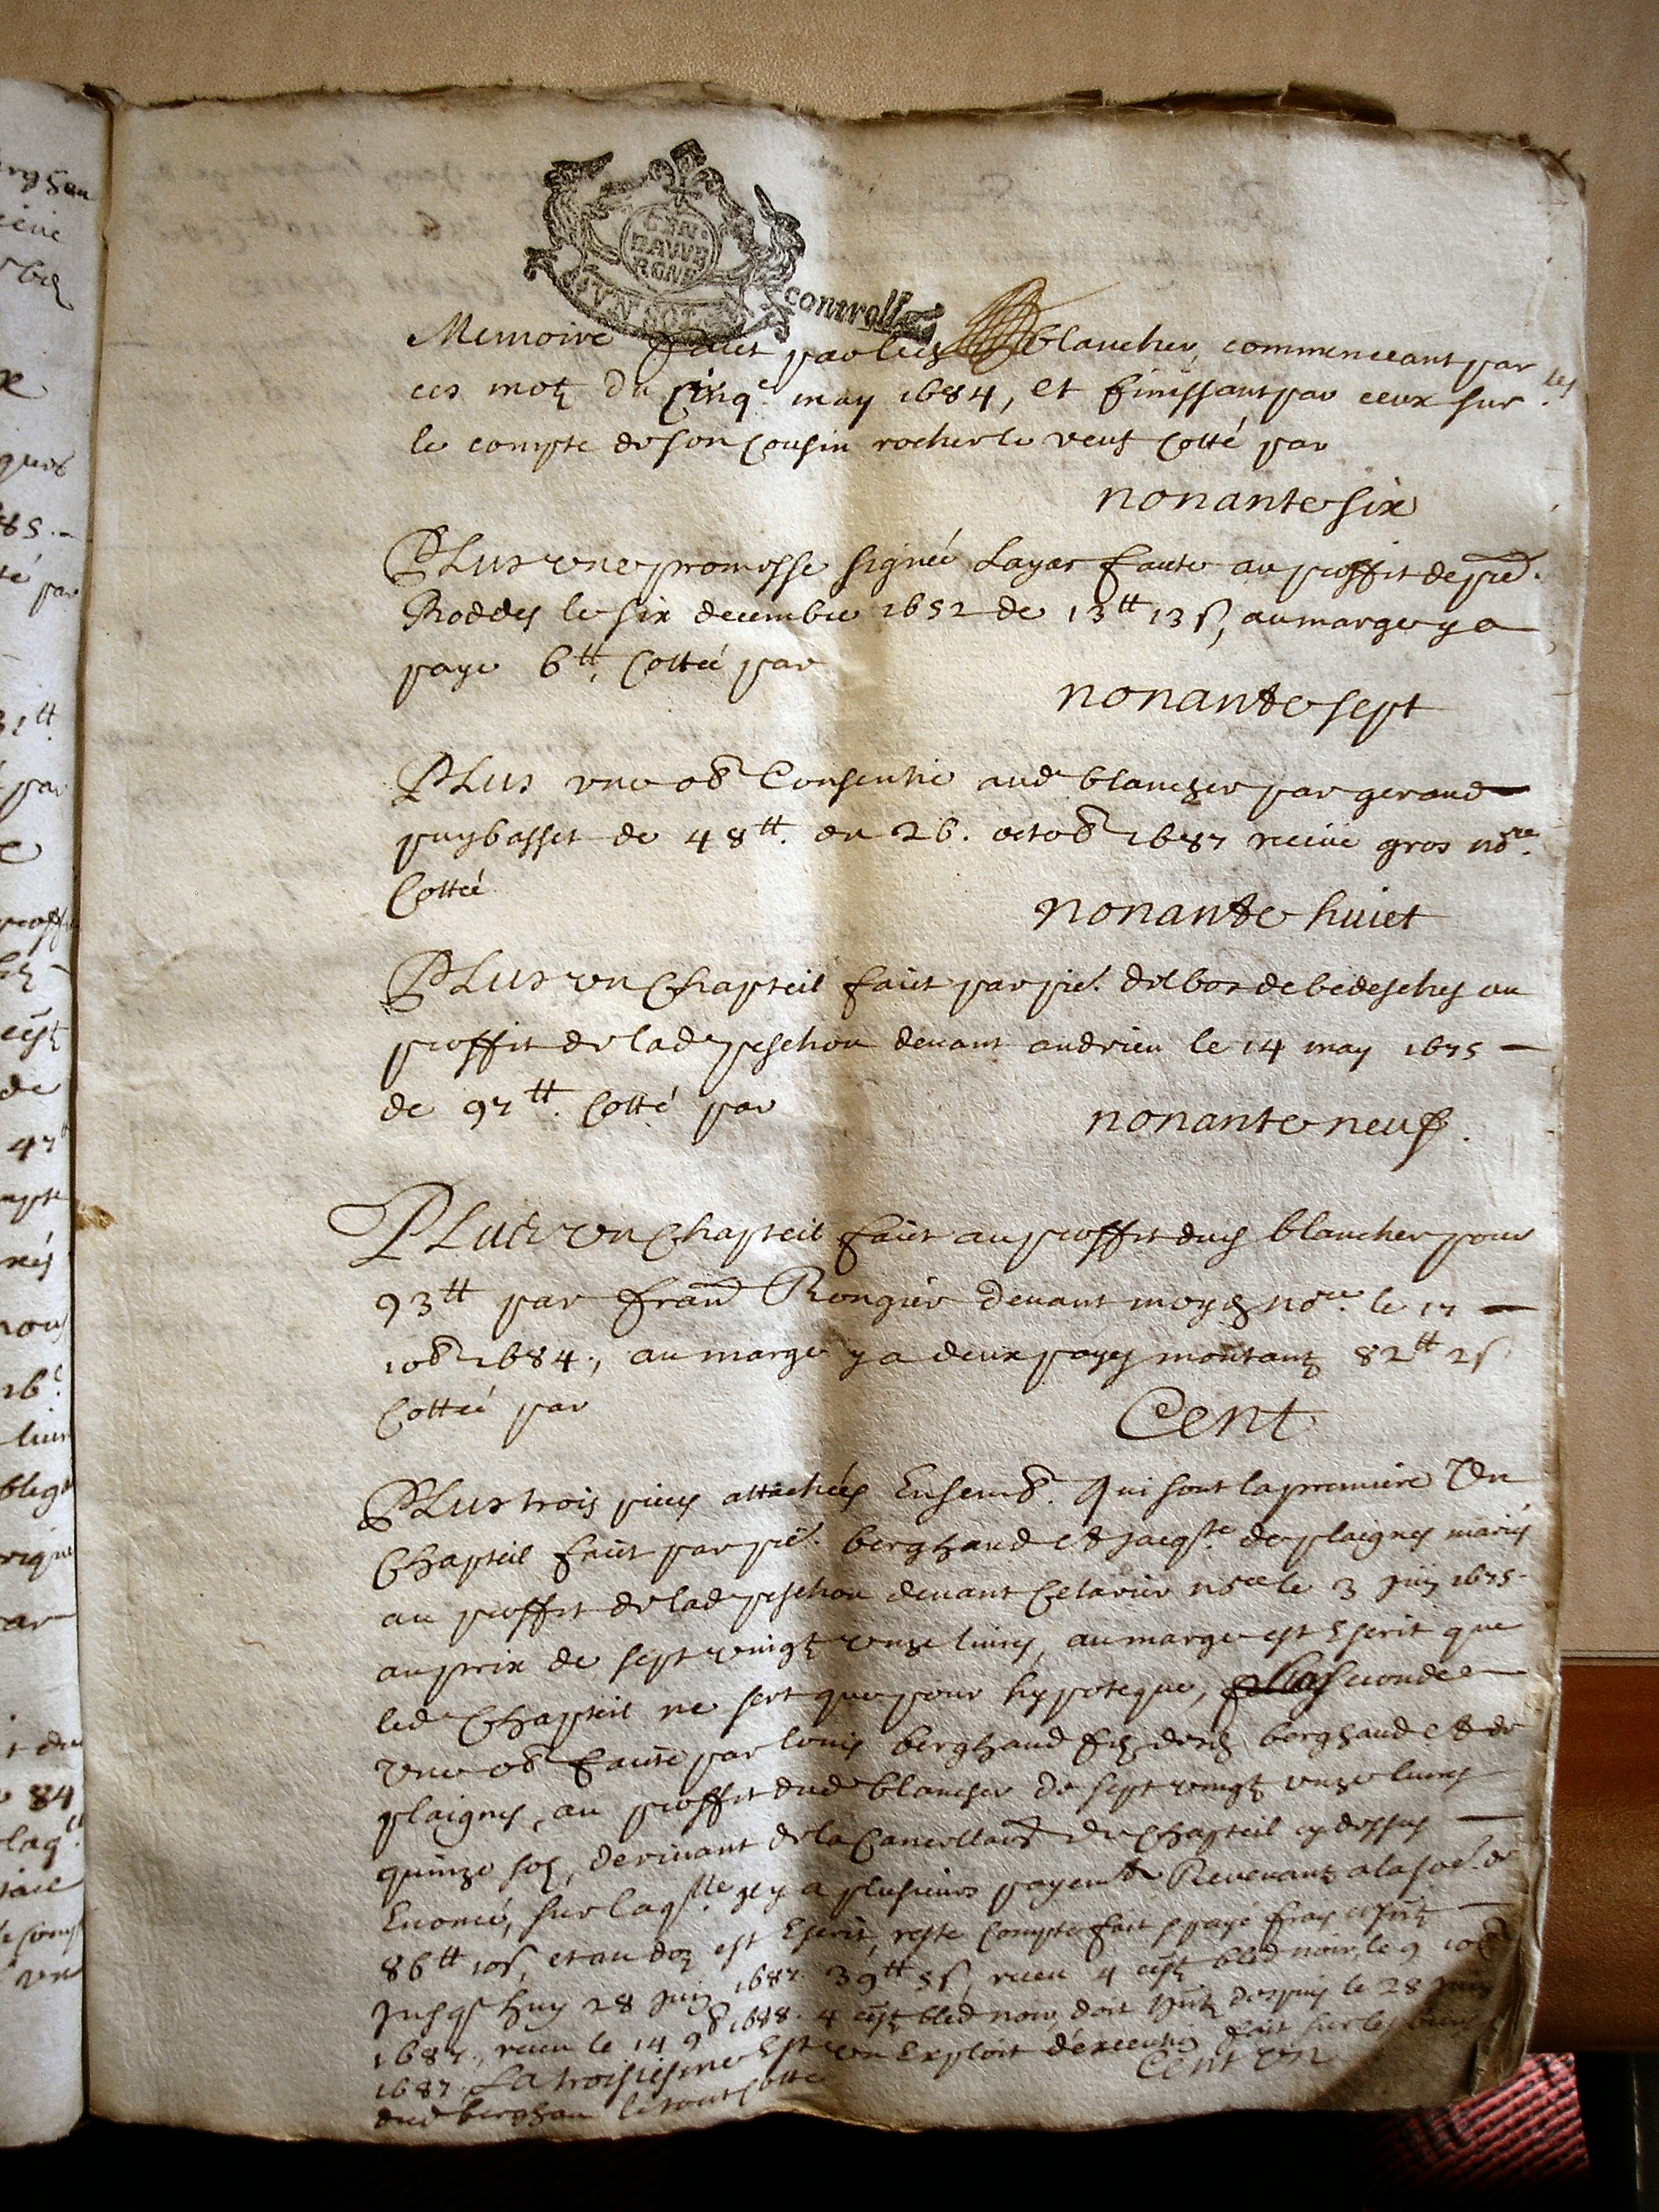 GEN.
DAVVE
RGNE
VN SOL
controllé
Memoire faict par led blancher, commenceant par
ces motz du cinqe may 1684, et finissant par ceux sur les
le compte de son cousin rocher le vent cotté par
nonante six
PLus une promesse signée Layac faite au proffit de pre.
Roddes le six decembre 1652 de 13tt 13s, au marge y a
paye 6tt. Cottée par
nonante sept
PLus une ob Consentie aud blancher par geraud
puybasset de 48tt. du 26. octob 1687 receue gros nore.
Cottée
nonante huict
PLus un Chapteil faict par pre. delbos de bedesches au
proffit de lad peschou devant andrieu le 14 may 1675
de 97tt. Cotté par
nonante neuf.
PLus un Chapteil faict au proffit dud blancher pour
93tt par fran Rongier devant nore. le 17
10b 1684., au marge y a deux payes montant 82tt 2s
Cottée par
Cent
PLus trois pieces attachées Ensemb. Qui sont la premiere Un
Chapteil faict par pre. berghaud et jacqte de plaignes mariés
au proffit de lad peschou devant Celarier nore le 3 juin 1675
au prix de sept vingt unze livres, au marge est Escrit que
led Chapteil ne sert que pour hypoteque, la seconde
une ob faite par louis berghaud filz desd berghaud et de
plaignes, au proffit dud blancher de sept vingt unze livres
quinze solz, derivant de la Cancellaon du Chapteil cy dessus
Enoncé, sur laqlle il y a plusieurs payemts Revenant a la so.e de
86tt 10s, et au doz est Escrit, reste Compte fait payé frais
Jusqs huy 28 juin 1687. 39tt 5s, receu 4 blednoir, le 9 10b
1687., receu le 14 9b 1688. 4 bled noir, doit despuis le 28 juin
1687. La troisiesme Est un Exploit d'execution fait sur les biens
dud berghau le tout Cotté
Cent un